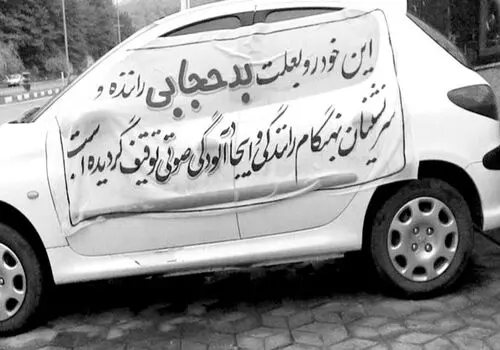 این خودرو بعلت بدحجابی راننده و
سرنشینان بهنگام رانندگی و ایجاد آلودگی صوتی توقیف گردیده است